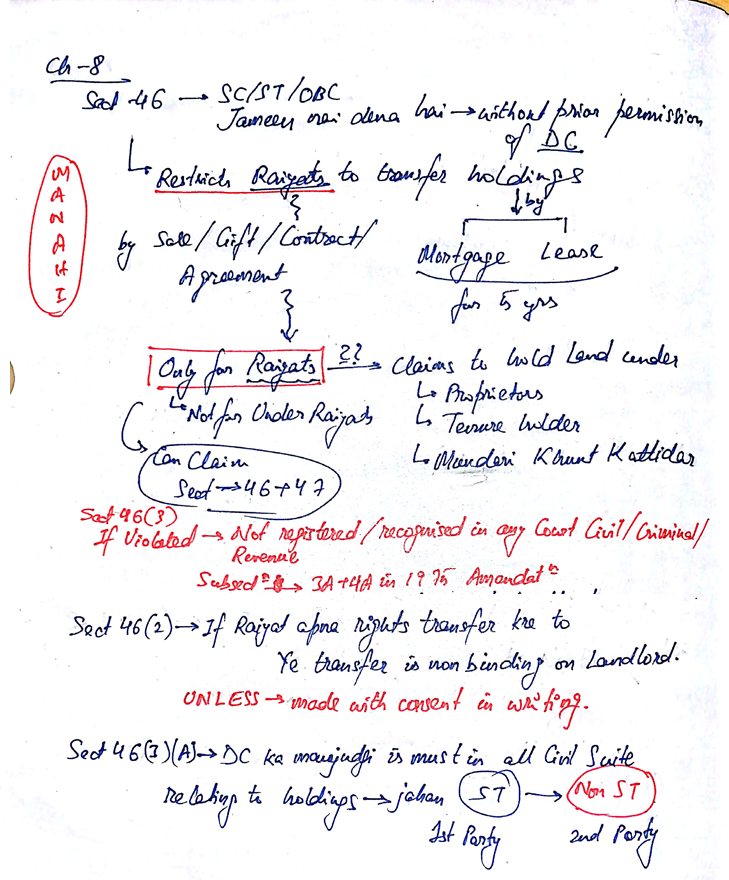 Ch-8
Sect 46 → SC/ST/OBC
Jameen nai dena hai → without prior permission
of DC
↳ Restricts Raiyats to transfer holdings
MANAHI
↓ by
by Sale/Gift/Contract/
Agreement
Mortgage Lease
for 5 yrs
Only for Raiyats ?? → Claims to hold Land under
↳ Not for Under Raiyats
↳ Proprietors
↳ Tenure holder
↳ Munderi Khunt Kattidar
Can Claim
Sect → 46 + 47
Sect 46(3)
If Violated → Not registered/recognised in any Court Civil/Criminal/
Revenue
Subsectⁿ → 3A+4A in 1975 Amendatⁿ
Sect 46(2) → If Raiyat apna rights transfer kre to
Ye transfer is non binding on Landlord.
UNLESS → made with consent in writing.
Sect 46(3)(A) → DC ka maujudgi is must in all Civil Suite
relating to holdings → jahan ST → Non ST
1st Party 2nd Party